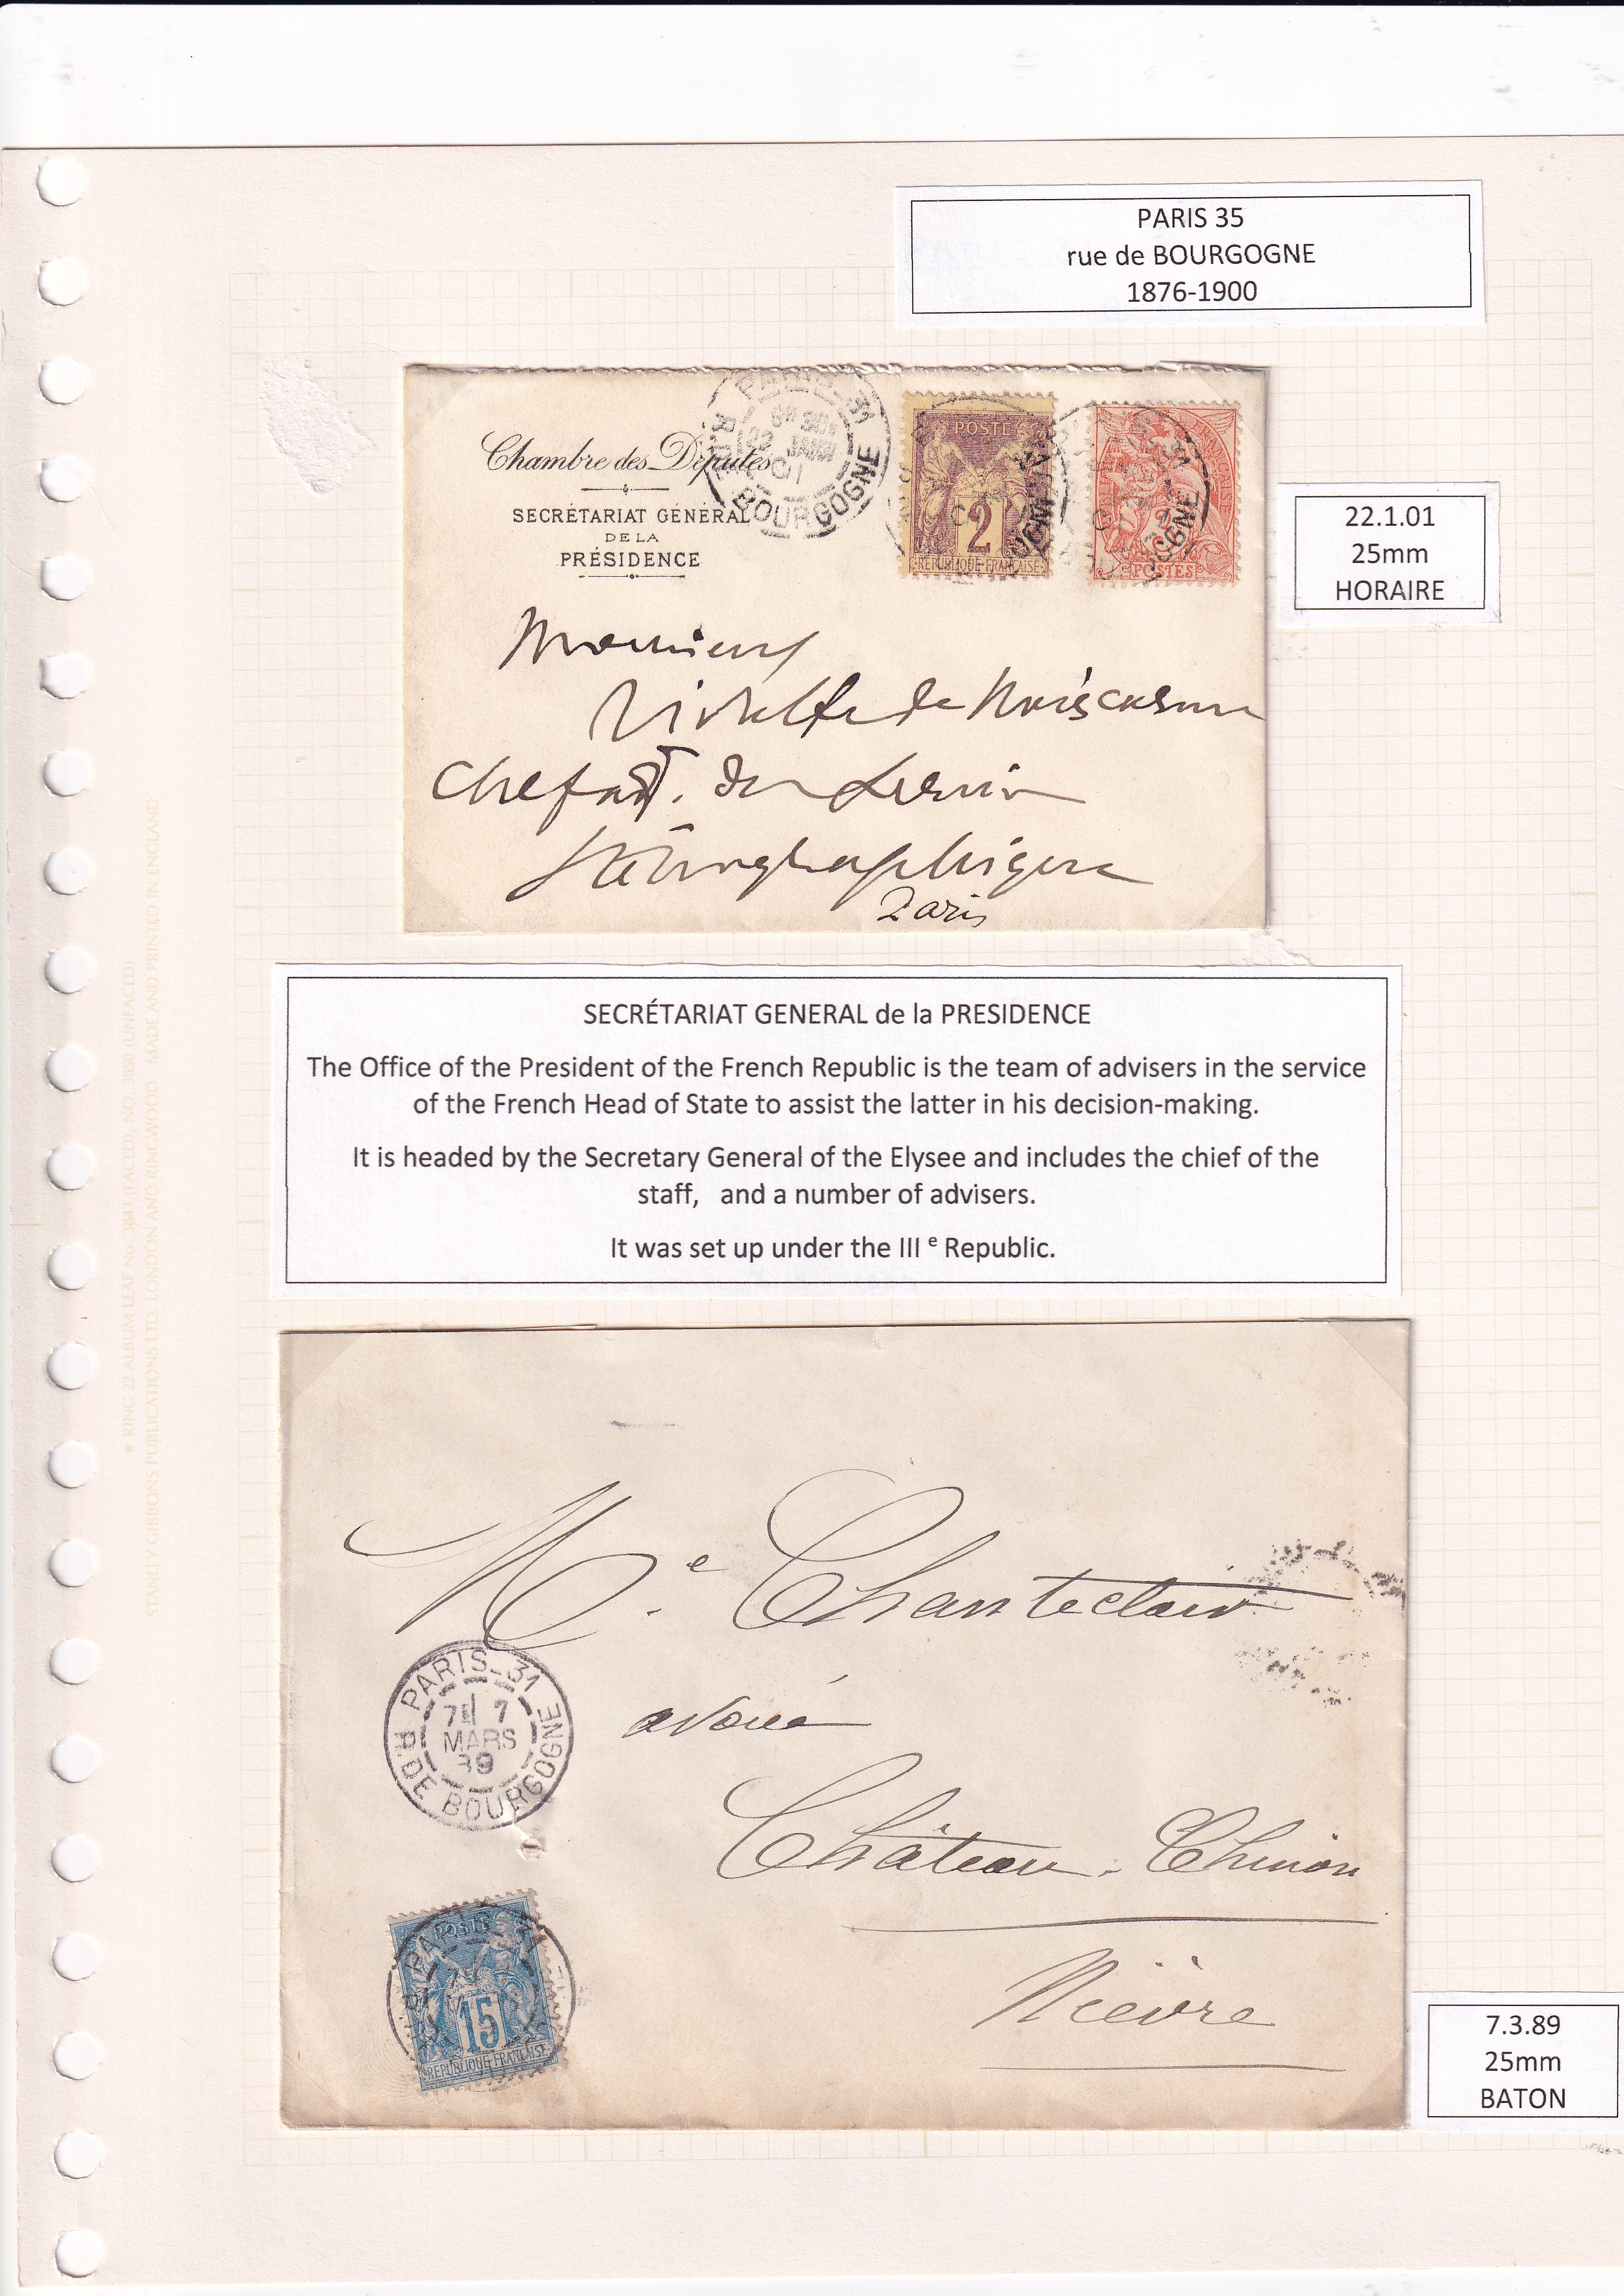 PARIS 35
rue de BOURGOGNE
1876-1900
Chambre des Députés
SECRÉTARIAT GÉNÉRAL
DE LA
PRÉSIDENCE
BOURGOGNE
JANV
01
POSTE
2
REPUBLIQUE FRANÇAISE
POSTES
22.1.01
25mm
HORAIRE
Monsieur
de
Chef
Sténographique
Paris
SECRÉTARIAT GENERAL de la PRESIDENCE
The Office of the President of the French Republic is the team of advisers in the service
of the French Head of State to assist the latter in his decision-making.
It is headed by the Secretary General of the Elysee and includes the chief of the
staff, and a number of advisers.
It was set up under the III e Republic.
Me Chanteclair
PARIS-31
7E 7
MARS
89
R. DE BOURGOGNE
avoué
Château-Chinon
Nièvre
POSTE
15
REPUBLIQUE FRANÇAISE
7.3.89
25mm
BATON
* RING 22 ALBUM LEAF No. 3841 (FACED), NO. 3880 (UNFACED)
STANLEY GIBBONS PUBLICATIONS LTD. LONDON AND RINGWOOD MADE AND PRINTED IN ENGLAND